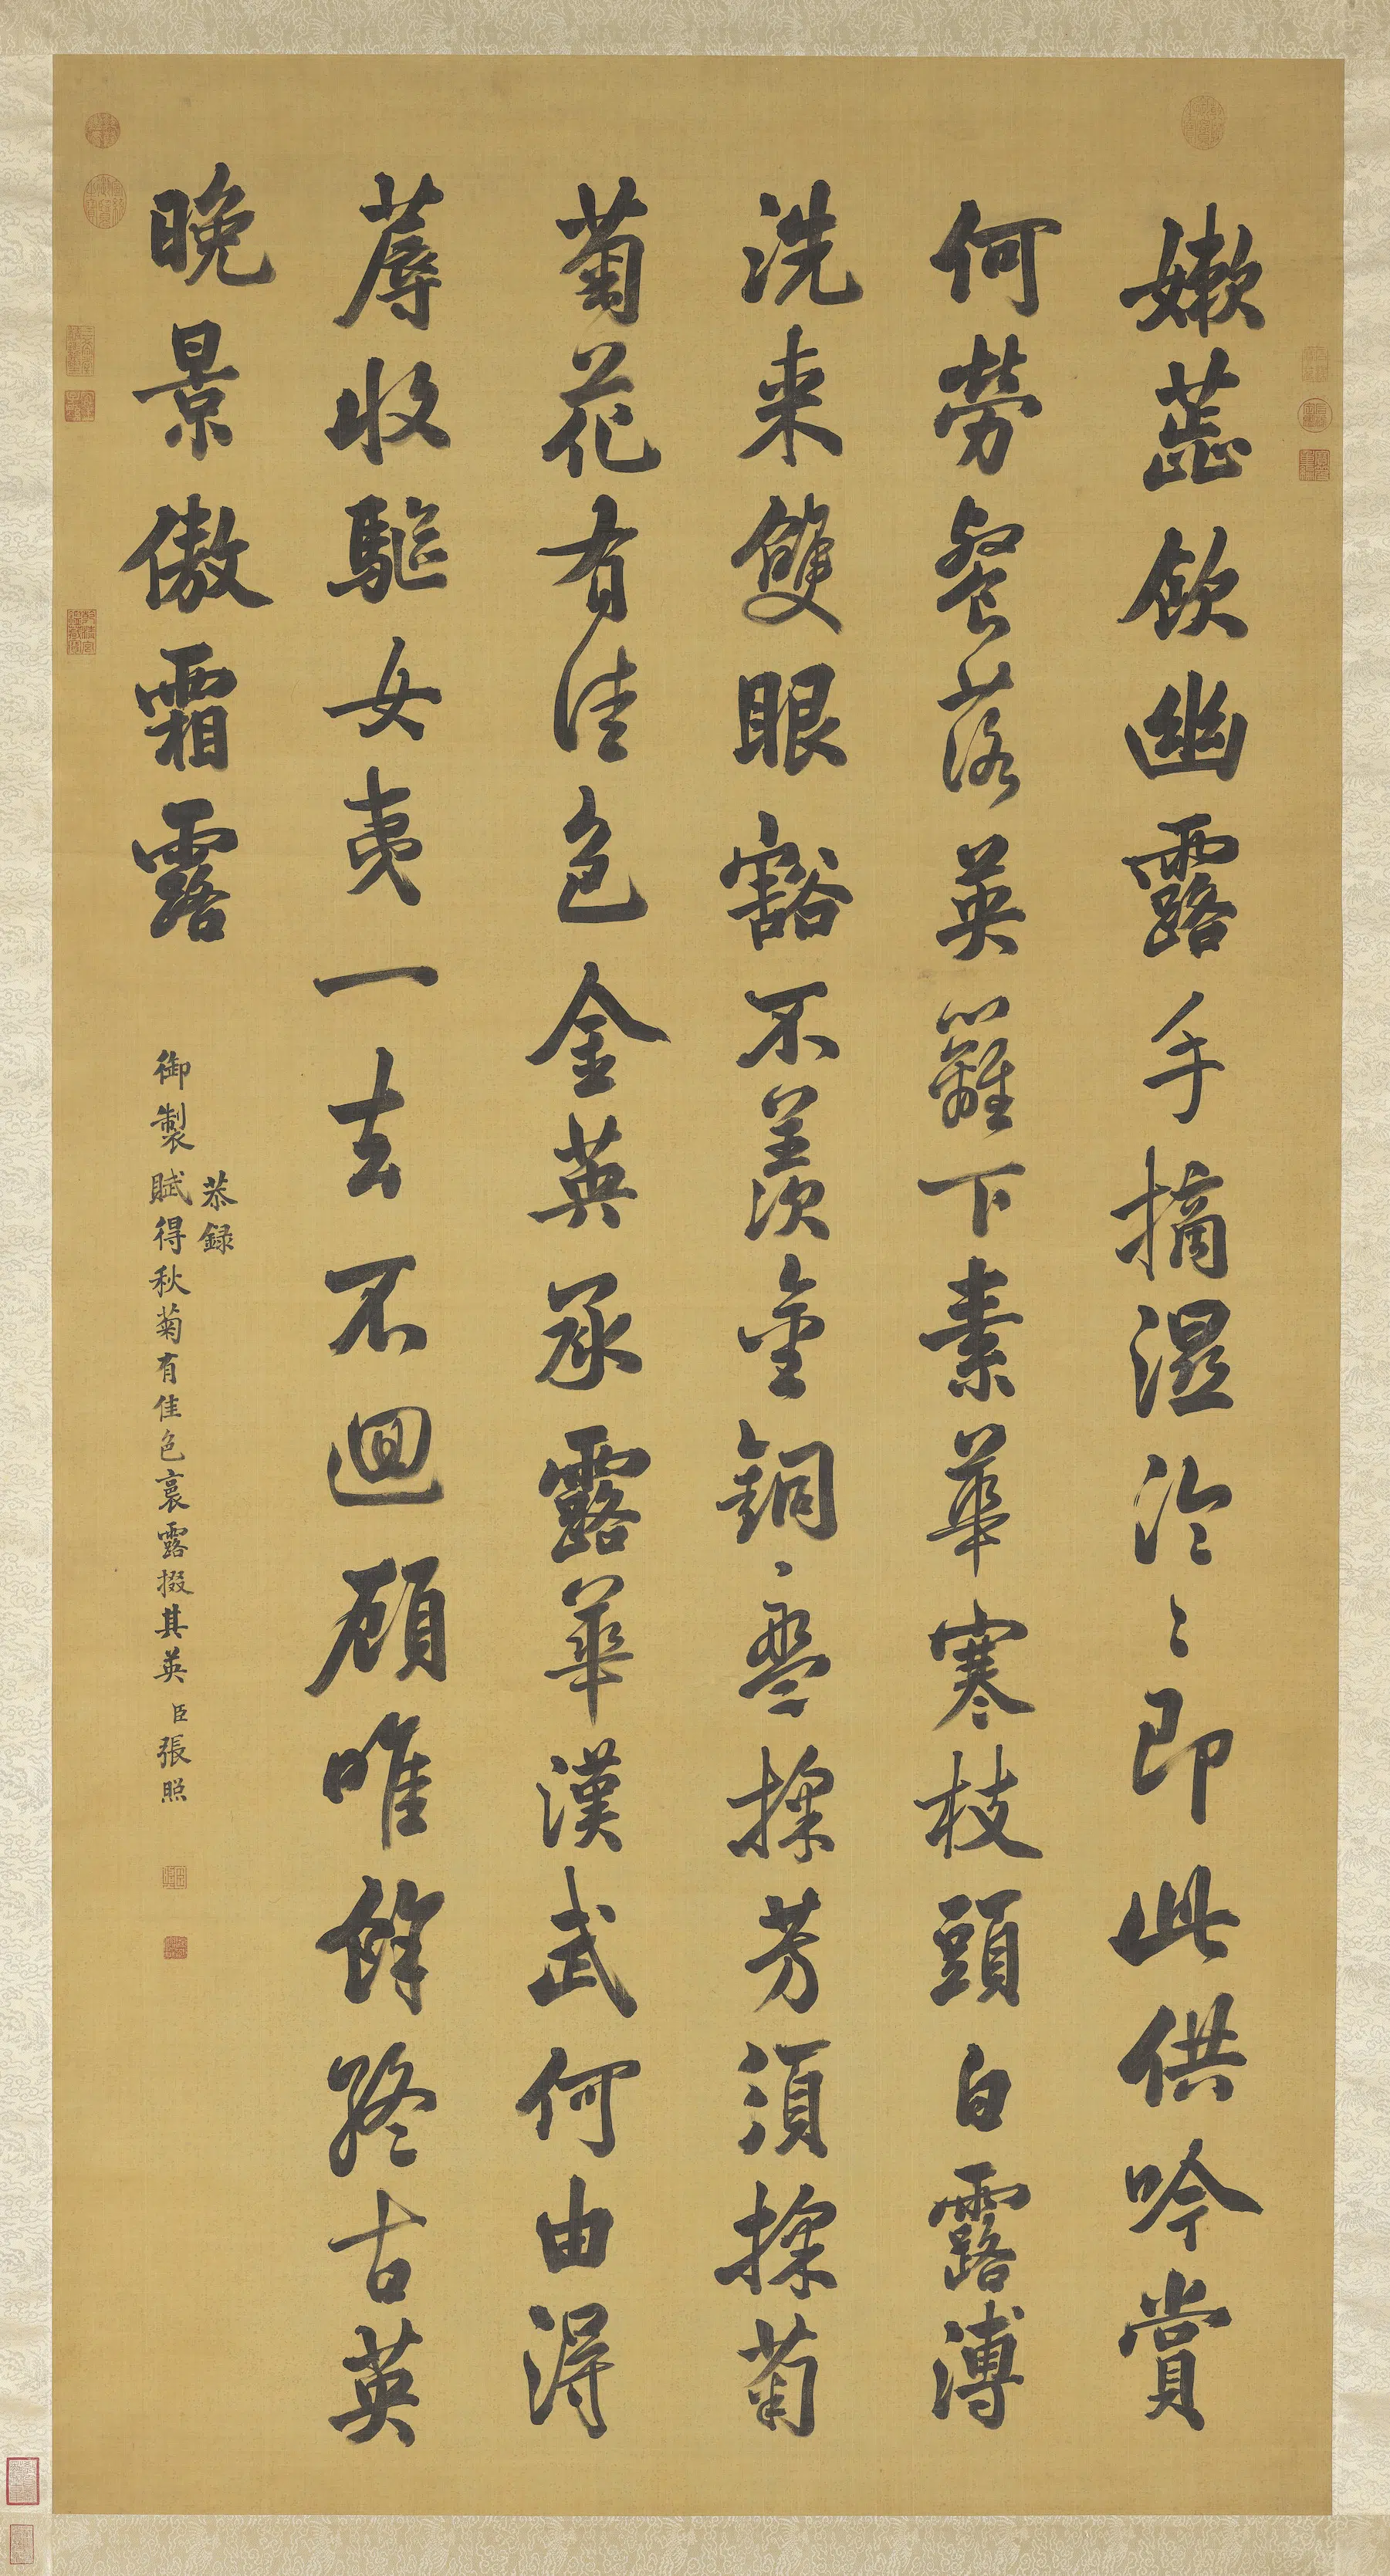 嫰蕋飲幽露手摘濕泠〻即此供吟賞
何勞餐落英籬下素華寒枝頭白露漙
洗来雙眼豁不羨金銅盤採芳須採菊
菊花有佳色金英承露華漢武何由得
蓐收驅女夷一去不迴顧唯餘終古英
晚景傲霜露
恭録
御製賦得秋菊有佳色裛露掇其英臣張照